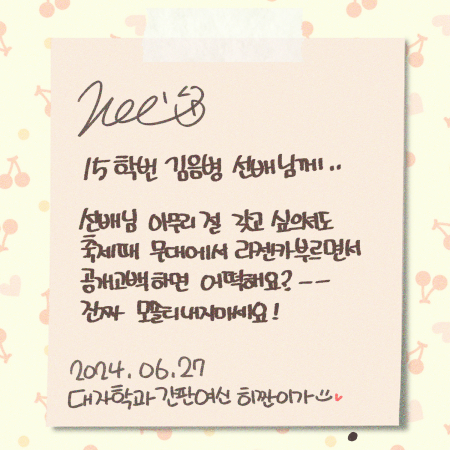 Hee
15학번 김음병 선배님께..
선배님 아무리 절 갖고 싶으셔도
축제때 무대에서 라젠카부르면서
공개고백하면 어떡해요? --
진짜 모쏠티내지마세요!
2024.06.27
대자학과 간판여신 히짠이가